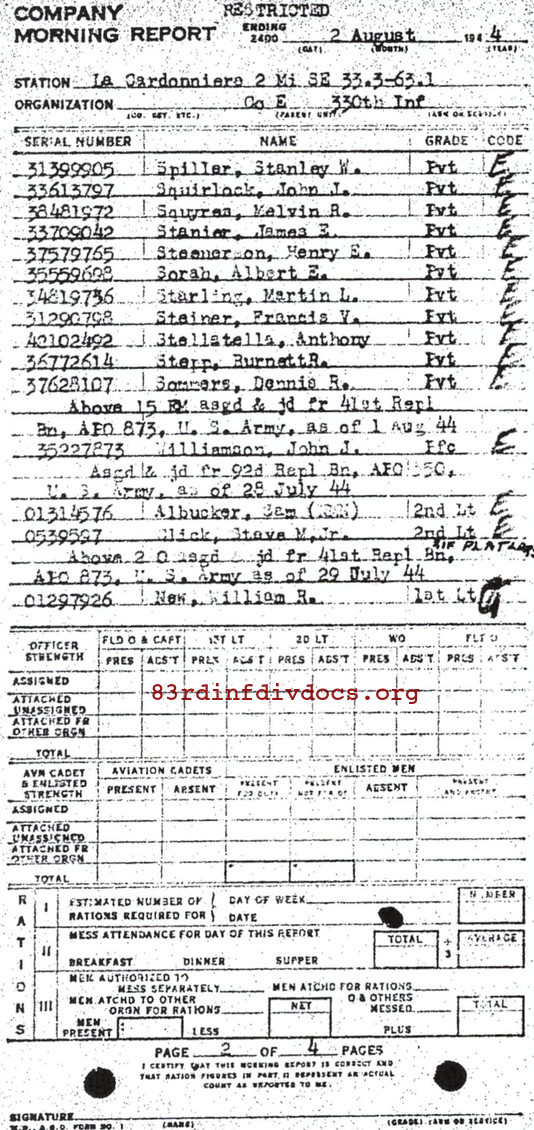 COMPANY RESTRICTED
MORNING REPORT ENDING 2400 2 August 194 4
(DAY) (MONTH) (YEAR)
STATION La Cardonniere 2 Mi SE 33.3-63.1
ORGANIZATION Co E 330th Inf
(CO, DET, ETC.) (PARENT UNIT) (ARM OR SERVICE)
SERIAL NUMBER NAME GRADE CODE
31399905 Spiller, Stanley W. Pvt E
33613797 Squirlock, John J. Pvt E
38481972 Squyres, Melvin R. Pvt E
33709042 Stanier, James E. Pvt E
37579765 Steenerson, Henry E. Pvt E
35559698 Sorah, Albert E. Pvt E
34819736 Starling, Martin L. Pvt E
31290798 Steiner, Francis V. Pvt E
42102492 Stellatella, Anthony Pvt E
36772614 Stepp, Burnett R. Pvt E
37628107 Sommers, Dennis R. Pvt E
Above 15 EM asgd & jd fr 41st Repl
Bn, APO 873, U. S. Army, as of 1 Aug 44
35227873 Williamson, John J. Pfc E
Asgd & jd fr 92d Repl Bn, APO 350,
U. S. Army, as of 28 July 44
01314576 Albucker, Sam 2nd Lt E
0539597 Glick, Steve M, Jr. 2nd Lt E
Above 2 O asgd & jd fr 41st Repl Bn,
APO 873, U. S. Army as of 29 July 44
01297926 New, William R. 1st Lt
OFFICER STRENGTH FLD O & CAPT 1ST LT 2D LT WO FLT O
PRES ABS'T PRES ABS'T PRES ABS'T PRES ABS'T PRES ABS'T
ASSIGNED
ATTACHED UNASSIGNED
ATTACHED FR OTHER ORGN
TOTAL
83rdinfdivdocs.org
AVN CADET & ENLISTED STRENGTH AVIATION CADETS ENLISTED MEN
PRESENT ABSENT PRESENT FOR DUTY PRESENT NOT FOR DY ABSENT PRESENT AND ABSENT
ASSIGNED
ATTACHED UNASSIGNED
ATTACHED FR OTHER ORGN
TOTAL
RATIONS
I ESTIMATED NUMBER OF RATIONS REQUIRED FOR DAY OF WEEK DATE NUMBER
II MESS ATTENDANCE FOR DAY OF THIS REPORT TOTAL ÷ 3 AVERAGE
BREAKFAST DINNER SUPPER
III MEN AUTHORIZED TO MESS SEPARATELY MEN ATCHD FOR RATIONS
MEN ATCHD TO OTHER ORGN FOR RATIONS NET O & OTHERS MESSED TOTAL
MEN PRESENT LESS PLUS
PAGE 2 OF 4 PAGES
I CERTIFY THAT THIS MORNING REPORT IS CORRECT AND
THAT RATION FIGURES IN PART II REPRESENT AN ACTUAL
COUNT AS REPORTED TO ME.
SIGNATURE
W.D., A.G.O. FORM NO. 1 (NAME) (GRADE) (ARM OR SERVICE)